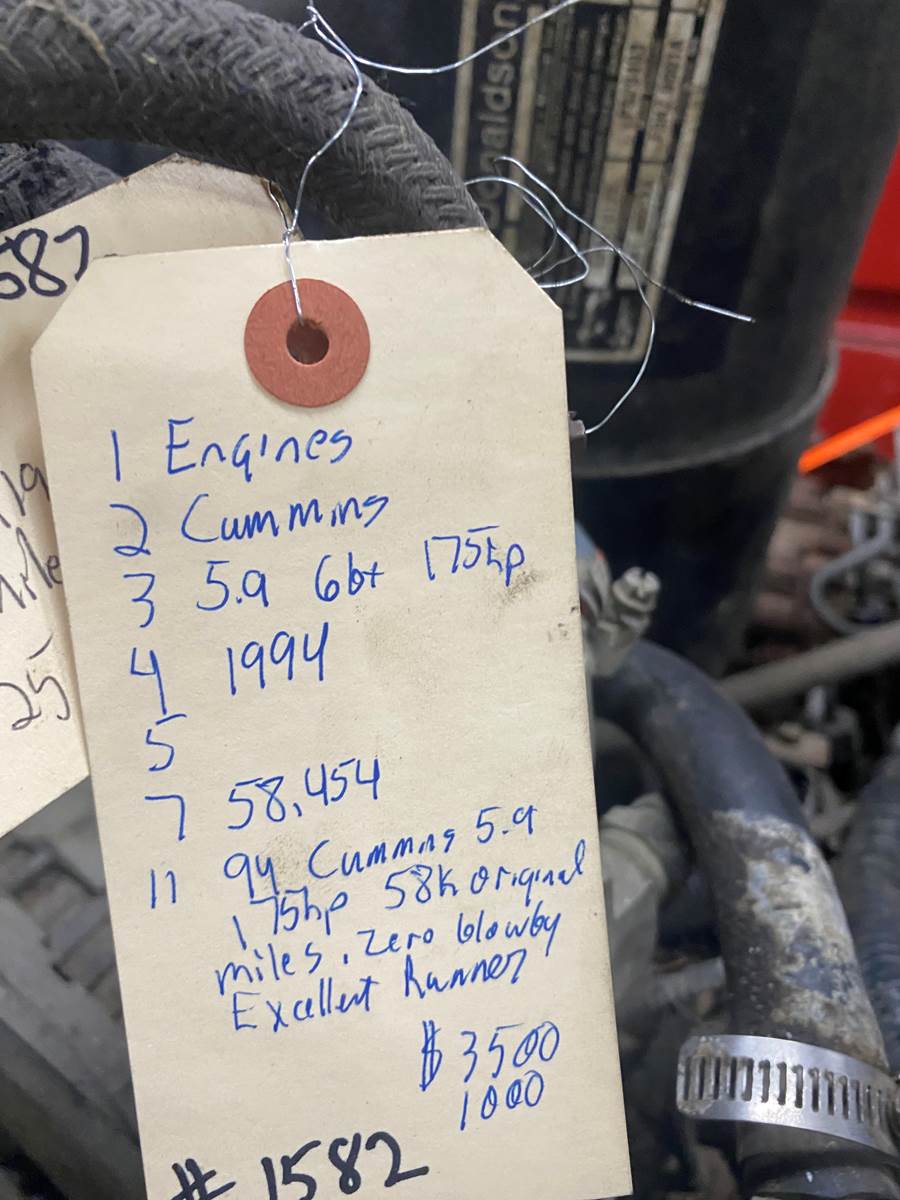 naldson
587
1 Engines
2 Cummins
3 5.9 6bt 175hp
4 1994
5
7 58,454
11 94 Cummins 5.9
175hp 58k original
miles. Zero blowby
Excellent Runner
$3500
1000
# 1582
25